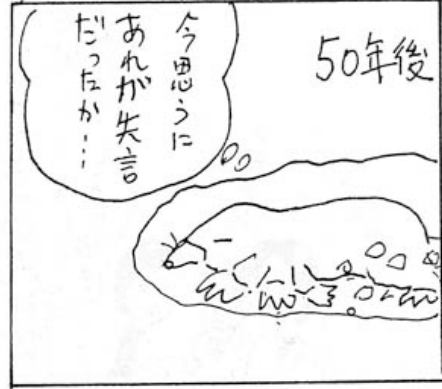 50年後
今思うに
あれが失言
だったか…